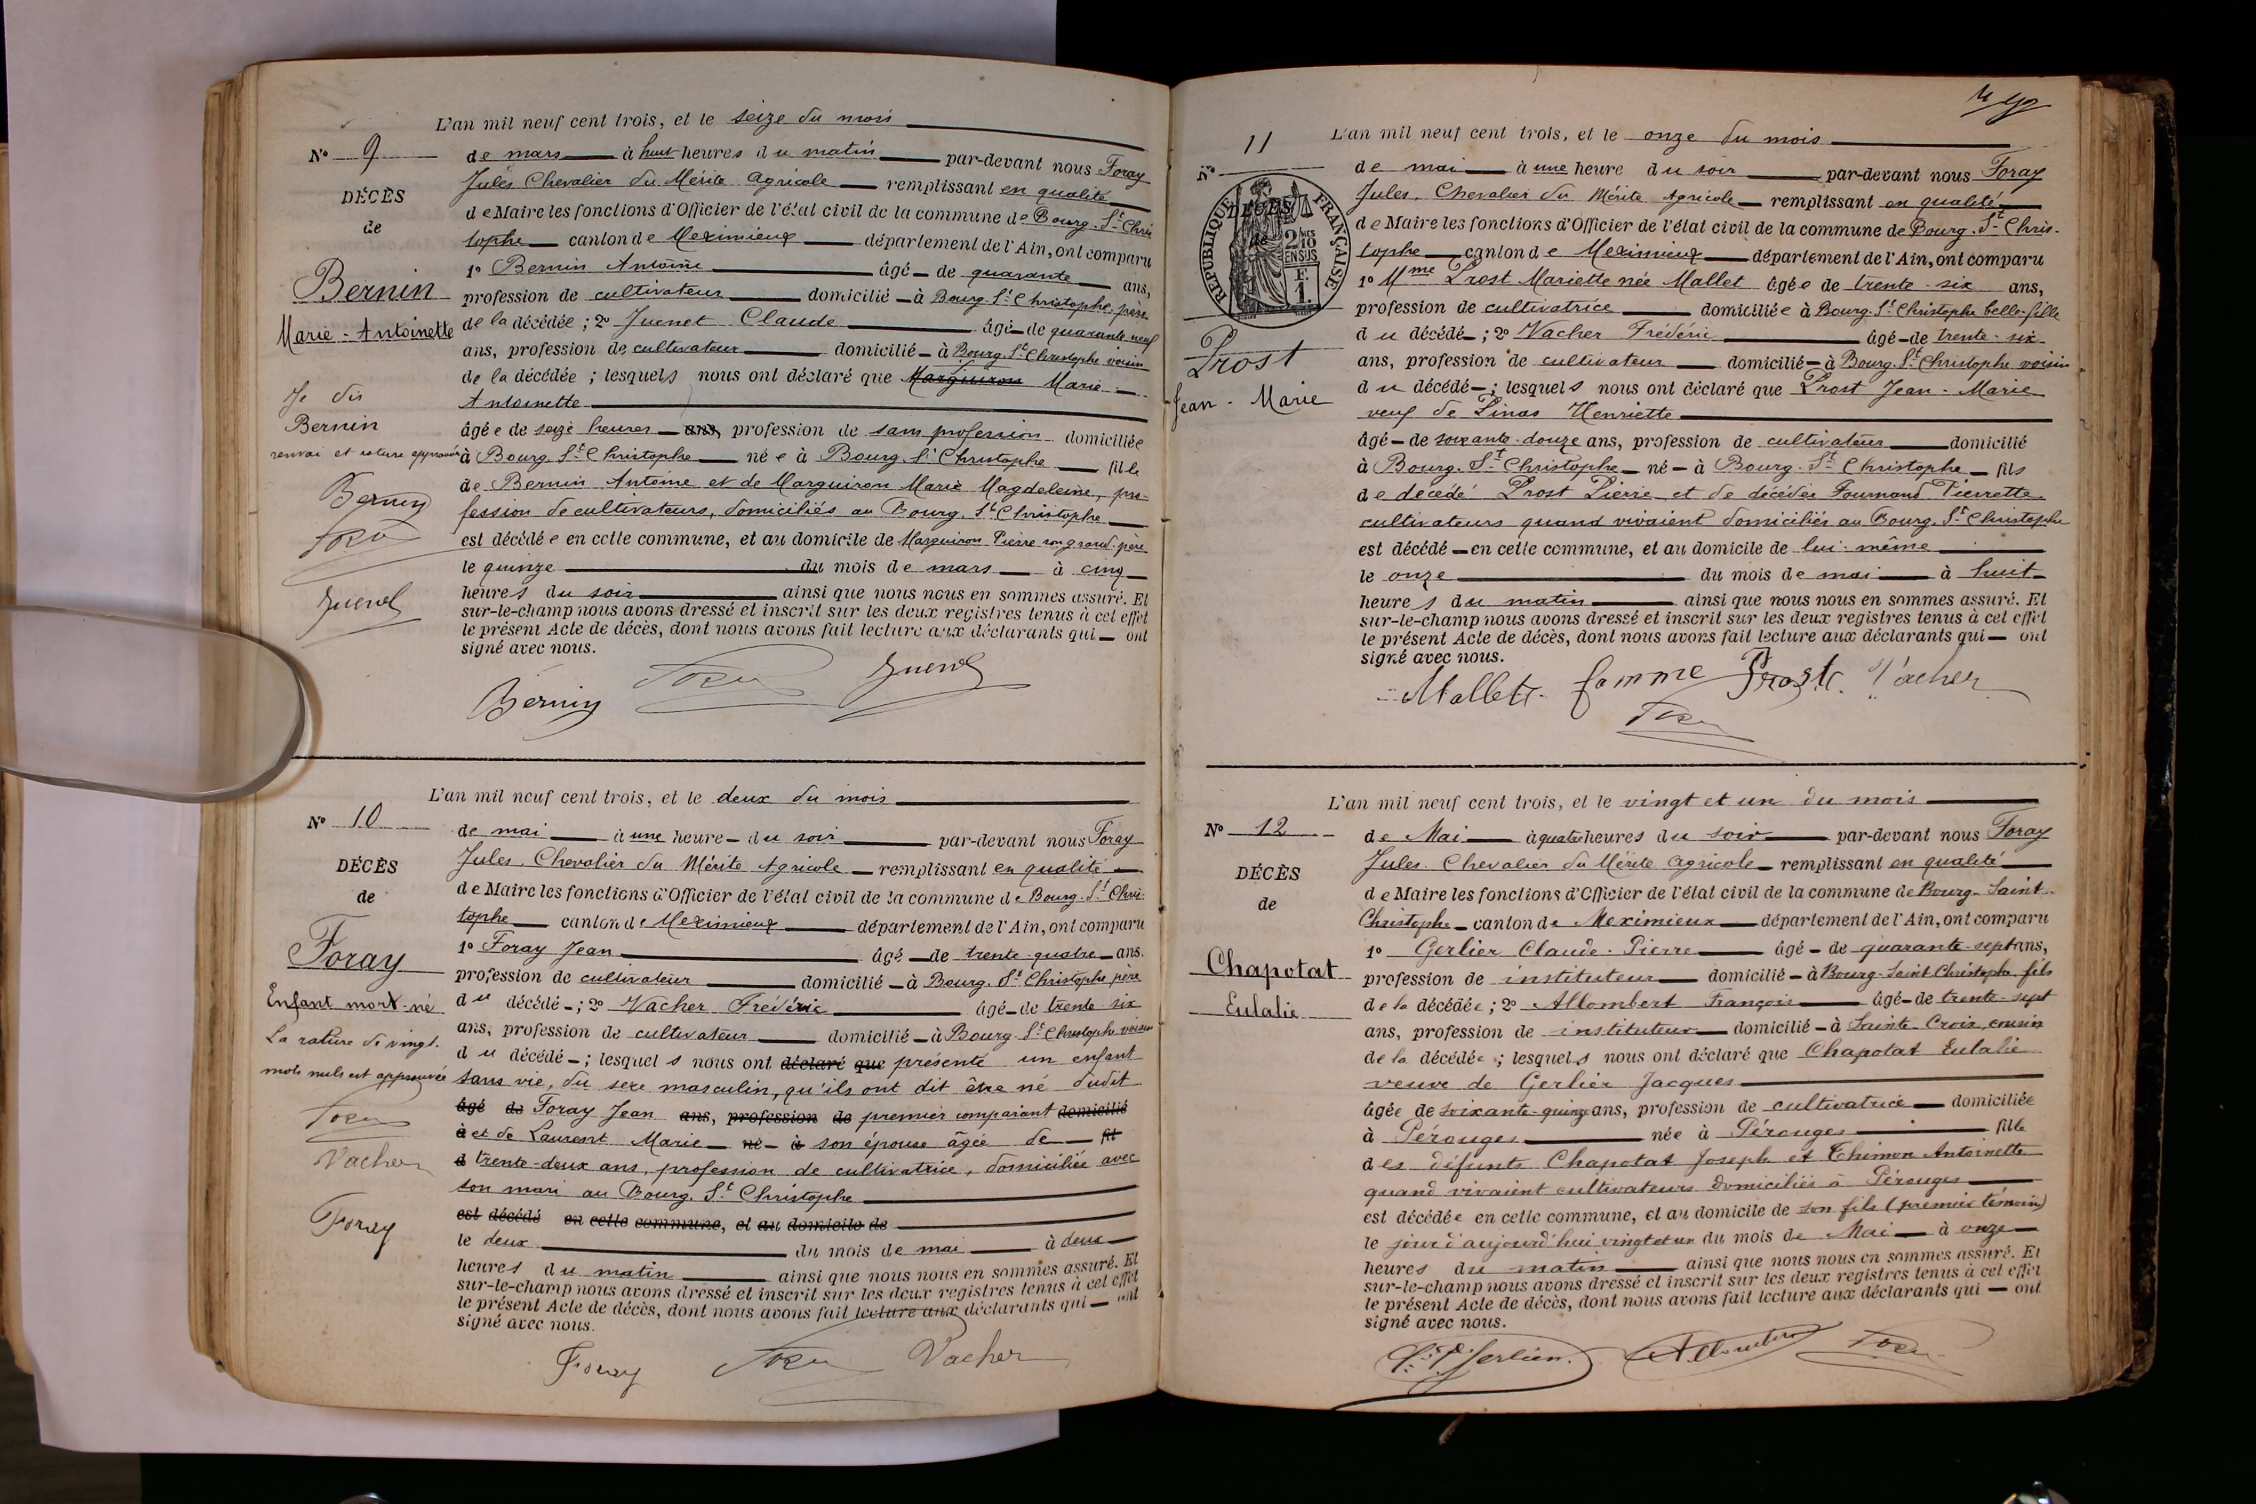 L'an mil neuf cent trois, et le seize du mois
No 9
de mars à huit heures du matin par-devant nous Foray
Jules Chevalier du Mérite Agricole remplissant en qualité
de Maire les fonctions d'Officier de l'état civil de la commune de Bourg-St-Chris
tophe canton de Meximieux département de l'Ain, ont comparu
1o Bernin Antoine âgé de quarante ans,
profession de cultivateur domicilié à Bourg-St-Christophe, père
de la décédée ; 2o Juenet Claude âgé de quarante neuf
ans, profession de cultivateur domicilié à Bourg-St-Christophe voisin
de la décédée ; lesquels nous ont déclaré que Marguiron Marie-
Antoinette
âgée de seize heures ans, profession de sans profession domiciliée
à Bourg-St-Christophe née à Bourg-St-Christophe fille
de Bernin Antoine et de Marguiron Marie Magdeleine, pro-
fession de cultivateurs, domiciliés au Bourg-St-Christophe
est décédée en cette commune, et au domicile de Marguiron Pierre son grand-père
le quinze du mois de mars à cinq
heures du soir ainsi que nous nous en sommes assuré. Et
sur-le-champ nous avons dressé et inscrit sur les deux registres tenus à cet effet
le présent Acte de décès, dont nous avons fait lecture aux déclarants qui ont
signé avec nous.
Bernin Foray Juenet
DÉCÈS
de
Bernin
Marie-Antoinette
Je dis
Bernin
renvoi et rature approuvés
Bernin
Foray
Juenet
L'an mil neuf cent trois, et le deux du mois
No 10
de mai à une heure du soir par-devant nous Foray
Jules, Chevalier du Mérite Agricole remplissant en qualité
de Maire les fonctions d'Officier de l'état civil de la commune de Bourg-St-Chris-
tophe canton de Meximieux département de l'Ain, ont comparu
1o Foray Jean âgé de trente-quatre ans.
profession de cultivateur domicilié à Bourg-St-Christophe père
du décédé ; 2o Vacher Frédéric âgé de trente-six
ans, profession de cultivateur domicilié à Bourg-St-Christophe voisin
du décédé ; lesquels nous ont déclaré que présenté un enfant
sans vie, du sexe masculin, qu'ils ont dit être né dudit
âgé de Foray Jean ans, profession de premier comparant domicilié
à et de Laurent Marie né à son épouse âgée de fil
d trente-deux ans, profession de cultivatrice, domiciliée avec
son mari au Bourg-St-Christophe
est décédé en cette commune, et au domicile de
le deux du mois de mai à deux
heures du matin ainsi que nous nous en sommes assuré. Et
sur-le-champ nous avons dressé et inscrit sur les deux registres tenus à cet effet
le présent Acte de décès, dont nous avons fait lecture aux déclarants qui ont
signé avec nous.
Foray Foray Vacher
DÉCÈS
de
Foray
Enfant mort-né
La rature de vingt-
mots nuls est approuvée
Foray
Vacher
Foray
49
L'an mil neuf cent trois, et le onze du mois
No 11
de mai à une heure du soir par-devant nous Foray
Jules, Chevalier du Mérite Agricole remplissant en qualité
de Maire les fonctions d'Officier de l'état civil de la commune de Bourg-St-Chris-
tophe canton de Meximieux département de l'Ain, ont comparu
1o Mme Prost Mariette née Mallet âgée de trente-six ans,
profession de cultivatrice domiciliée à Bourg-St-Christophe belle-fille
du décédé ; 2o Vacher Frédéric âgé de trente-six
ans, profession de cultivateur domicilié à Bourg-St-Christophe voisin
du décédé ; lesquels nous ont déclaré que Prost Jean-Marie
veuf de Pinas Henriette
âgé de soixante-douze ans, profession de cultivateur domicilié
à Bourg-St-Christophe né à Bourg-St-Christophe fils
de décédé Prost Pierre et de décédée Fournand Pierrette
cultivateurs quand vivaient domiciliés au Bourg-St-Christophe
est décédé en cette commune, et au domicile de lui-même
le onze du mois de mai à huit
heures du matin ainsi que nous nous en sommes assuré. Et
sur-le-champ nous avons dressé et inscrit sur les deux registres tenus à cet effet
le présent Acte de décès, dont nous avons fait lecture aux déclarants qui ont
signé avec nous.
Mallet femme Prost Vacher
Foray
RÉPUBLIQUE FRANÇAISE
DÉCÈS
de
2 MES
10
EN SUS
F.
1.
Prost
Jean-Marie
L'an mil neuf cent trois, et le vingt et un du mois
No 12
de Mai à quatre heures du soir par-devant nous Foray
Jules Chevalier du Mérite Agricole remplissant en qualité
de Maire les fonctions d'Officier de l'état civil de la commune de Bourg-Saint-
Christophe canton de Meximieux département de l'Ain, ont comparu
1o Gerlier Claude-Pierre âgé de quarante-sept ans,
profession de instituteur domicilié à Bourg-Saint-Christophe fils
de la décédée ; 2o Allombert François âgé de trente-sept
ans, profession de instituteur domicilié à Sainte-Croix, cousin
de la décédée ; lesquels nous ont déclaré que Chapotat Eulalie
veuve de Gerlier Jacques
âgée de soixante-quinze ans, profession de cultivatrice domiciliée
à Pérouges née à Pérouges fille
des défunts Chapotat Joseph et Thimon Antoinette
quand vivaient cultivateurs domiciliés à Pérouges
est décédée en cette commune, et au domicile de son fils (premier témoin)
le jour d'aujourd'hui vingt et un du mois de Mai à onze
heures du matin ainsi que nous nous en sommes assuré. Et
sur-le-champ nous avons dressé et inscrit sur les deux registres tenus à cet effet
le présent Acte de décès, dont nous avons fait lecture aux déclarants qui ont
signé avec nous.
Gerlier Allombert Foray
DÉCÈS
de
Chapotat
Eulalie